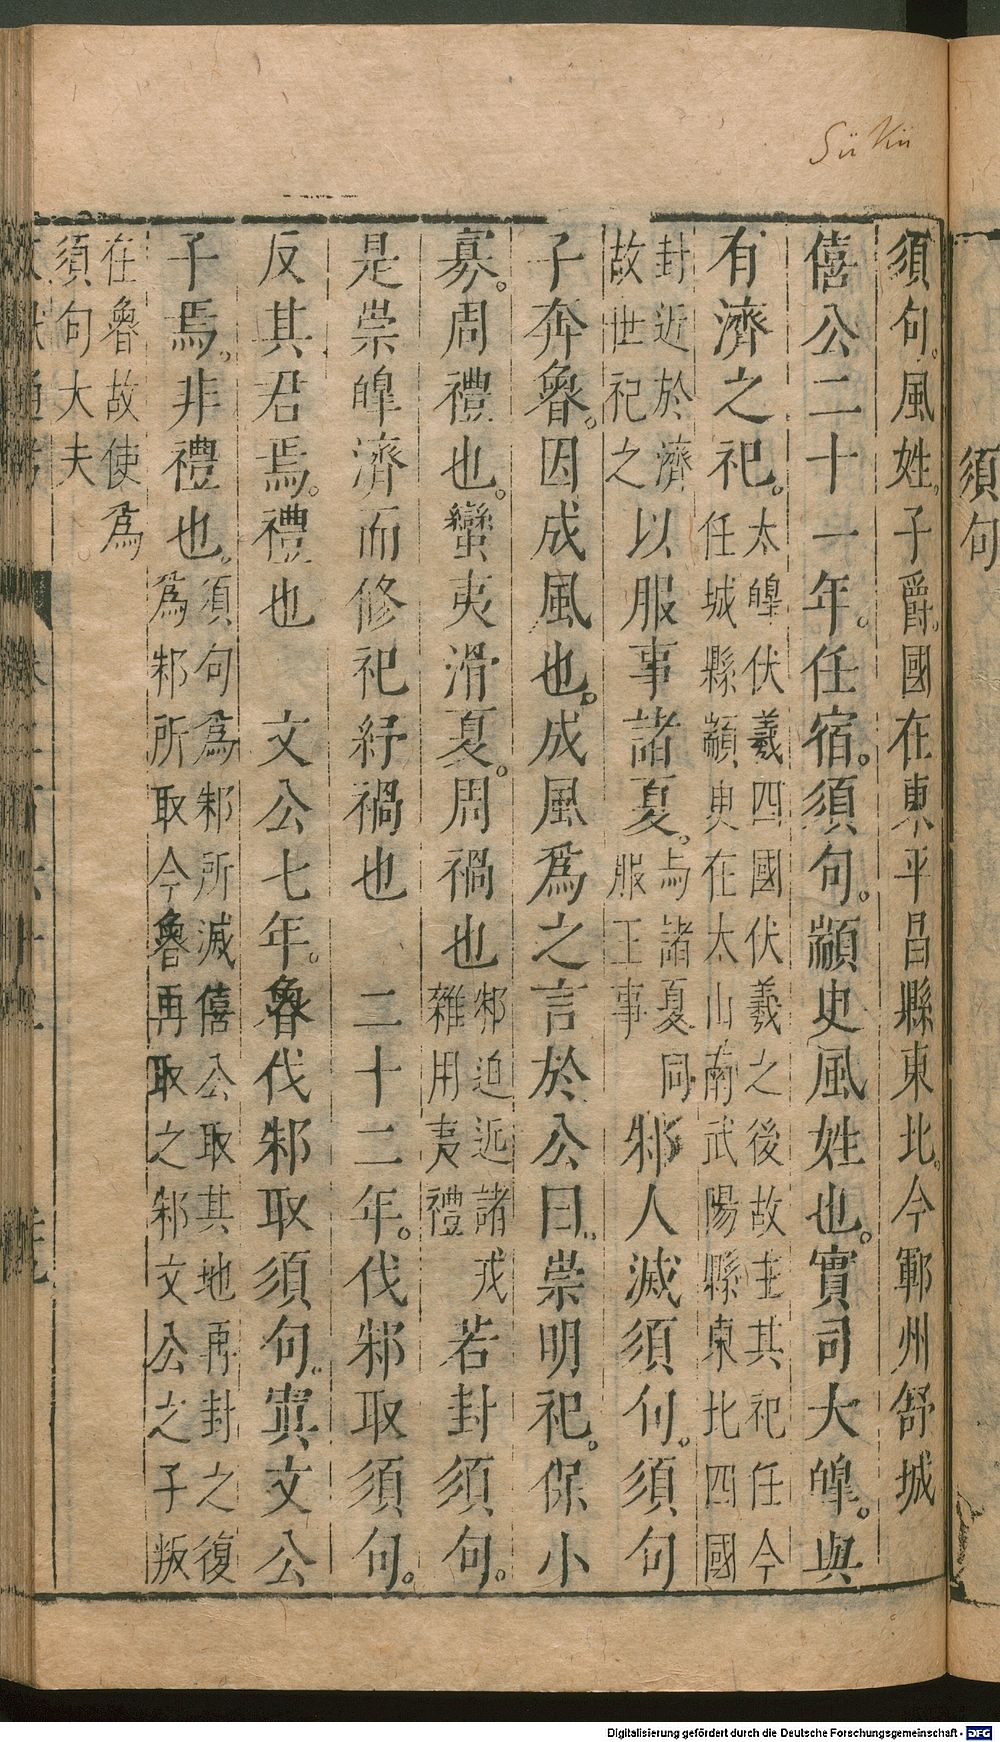 Sü Kü
須句
須句。風姓。子爵。國在東平昌縣東北。今鄆州舒城
僖公二十一年。任宿。須句。顓臾風姓也。實司大皥。與
有濟之祀。
太皥伏羲四國伏羲之後故主其祀任今
任城縣顓臾在太山南武陽縣東北四國
封近於濟
故世祀之
以服事諸夏。
与諸夏同
服王事
邾人滅須句。須句
子奔魯。因成風也。成風爲之言於公曰。崇明祀。保小
寡。周禮也。蠻夷滑夏。周禍也
邾迫近諸戎
雜用夷禮
若封須句。
是崇皥濟而修祀紓禍也　二十二年。伐邾取須句。
反其君焉。禮也　文公七年。魯伐邾取須句。寘文公
子焉。非禮也。
須句爲邾所滅僖公取其地再封之復
爲邾所取今魯再取之邾文公之子叛
在魯故使爲
須句大夫。
Digitalisierung gefördert durch die Deutsche Forschungsgemeinschaft - DFG